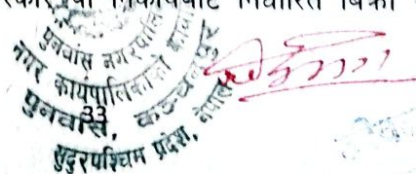 निकायबाट निर्धारित बिक्री
पुनर्वास नगरपालि
नगर कार्यपालिकाको कार्या
पुनर्वास, कञ्चनपुर
33
सुदुरपश्चिम प्रदेश, नेपाल